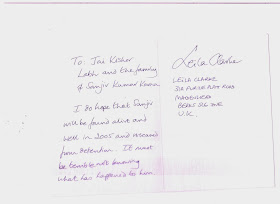 To: Jai Kishor
Labh and the family
of Sanjiv Kumar Karna
I do hope that Sanjiv
will be found alive and
well in 2005 and released
from detention. It must
be terrible not knowing
what has happened to him.
Leila Clarke
LEILA CLARKE
MAIDENHEAD
BERKS SL6
U.K.